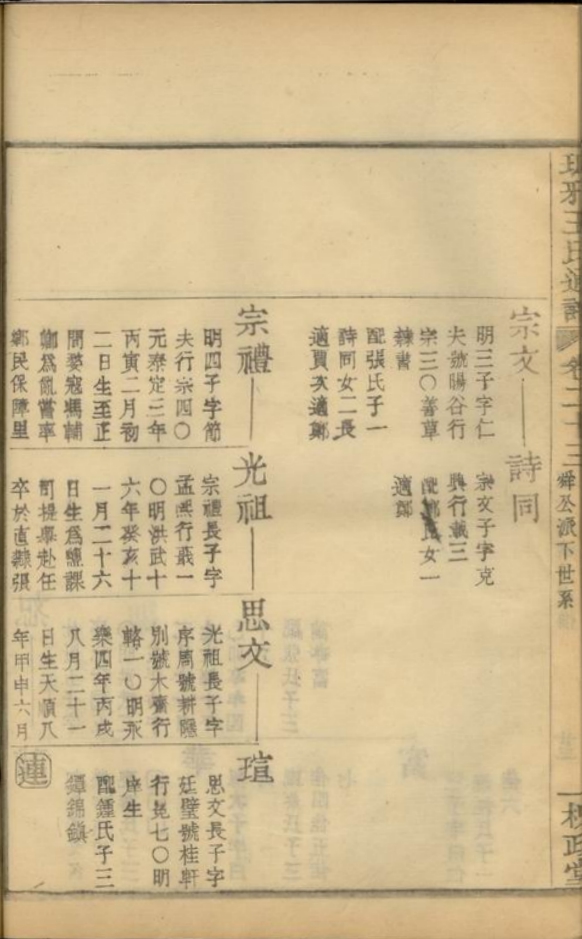 琅邪王氏通譜
卷二十三
舜公派下世系
槐政堂
宗文
明三子字仁
夫號暘谷行
宗三〇善草
隸書
配張氏子一
詩同女二長
適賈次適鄭
詩同
宗文子字克
興行義三
配鄭氏女一
適鄭
宗禮
明四子字節
夫行宗四〇
元泰定三年
丙寅二月初
二日生至正
間婺寇馮輔
卿為亂嘗率
鄉民保障里
光祖
宗禮長子字
孟熙行義一
〇明洪武十
六年癸亥十
一月二十六
日生為鹽課
司提舉赴任
卒於直隸張
思文
光祖長子字
序周號耕隱
別號木齋行
輅一〇明永
樂四年丙戌
八月二十一
日生天順八
年甲申六月
瑄
思文長子字
廷璧號桂軒
行冕七〇明
庠生
配鍾氏子三
鐔錦鎮
連